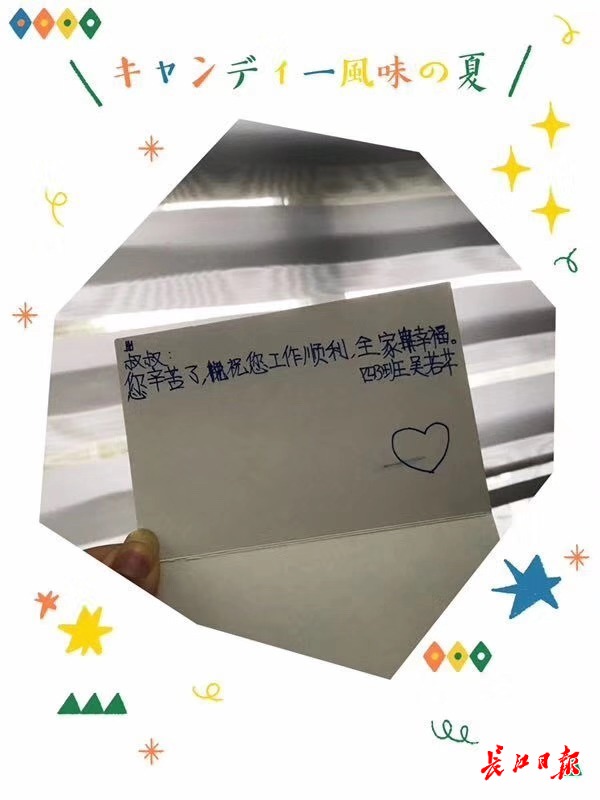 キャンディー風味の夏
叔叔：
您辛苦了，祝您工作顺利，全家幸福。
四3班王吴若芊
长江日报